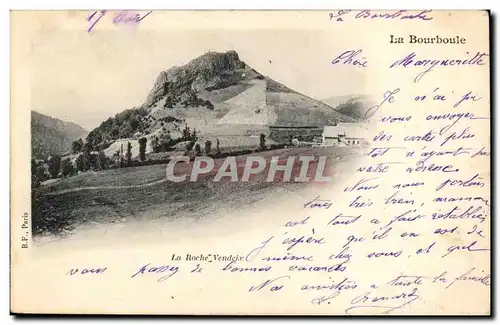 La Bourboule
La Bourboule
Chère Marguerite
Je n'ai pas
vous envoyer
des cartes plus
tot n'ayant pas
votre adresse
Nous nous portons
tous très bien, maman
est tout a fait rétablie
J'espère qu'il en est de
même chez vous et que
vous passez de bonnes vacances
Nos amitiés a toute la famille
La Roche Vendeix
B.F., Paris
CARTE-POSTALE-PHILATELIE CPA PRM